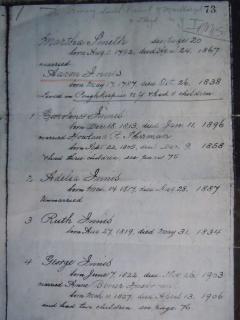 73
Martha Smith see page 20
born Aug. 2, 1792, died Nov 24, 1867
married
Aaron Innis
born May 17, 1787, died Oct 26, 1838
Lived in Poughkeepsie N.Y. & had 4 children
1 Caroline Innis
born Dec. 18, 1813, died Jan. 11, 1896
married Howland R. Sherman
born Sept 22, 1803, died Dec. 9 1858
& had three children, see page 75
2 Adelia Innis
born Mar. 14, 1817, died Aug 28, 1887
Unmarried
3 Ruth Innis
born Aug 27, 1819, died May 31, 1834
4 George Innis
born June 7, 1822, died 1903
married Ann
born Mch 11, 1827, died April 13, 1906
and had two children see page 76